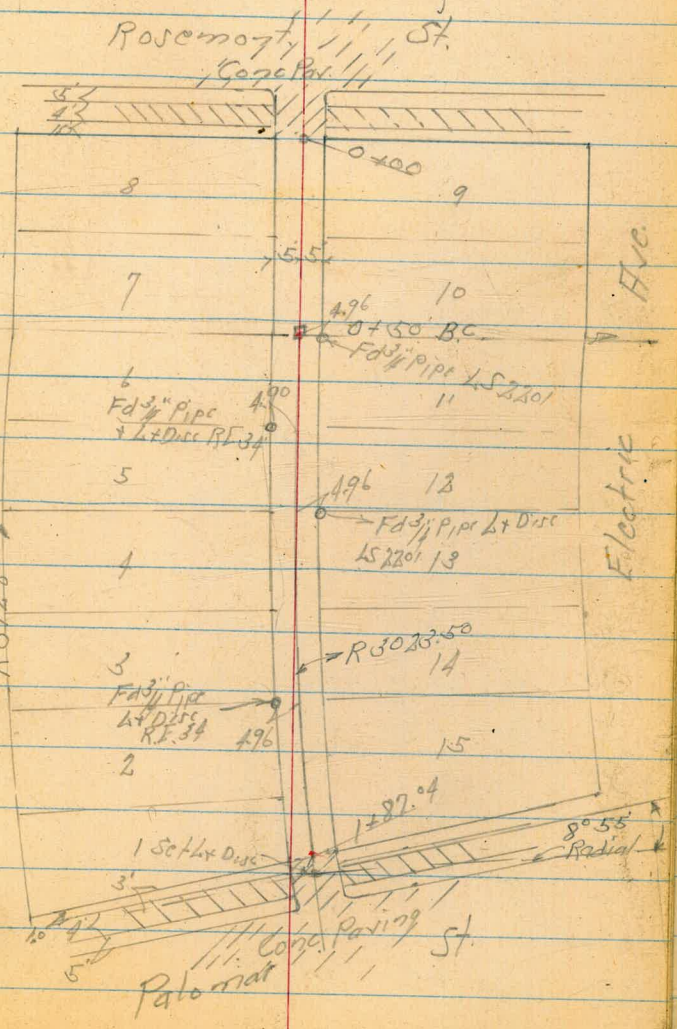 Rosemont St.
Conc Pav.
5'
4'
0+00
8
9
5' 5'
7
10
4.96
0+50 B.C.
Fd 3/4" Pipe LS 2201
Ave.
6
11
Fd 3/4" Pipe
+ L+Disc R.E. 34
4.90
5
12
4.96
Fd 3/4" Pipe L+Disc
LS 2201
13
Electric
4
R 3023.50
3
14
Fd 3/4" Pipe
L+Disc
R.E. 34
4.96
2
15
1+87.04
8° 55'
Radial
1 Set L+Disc
3'
10
4'
5'
Conc Paving
Palomar St.